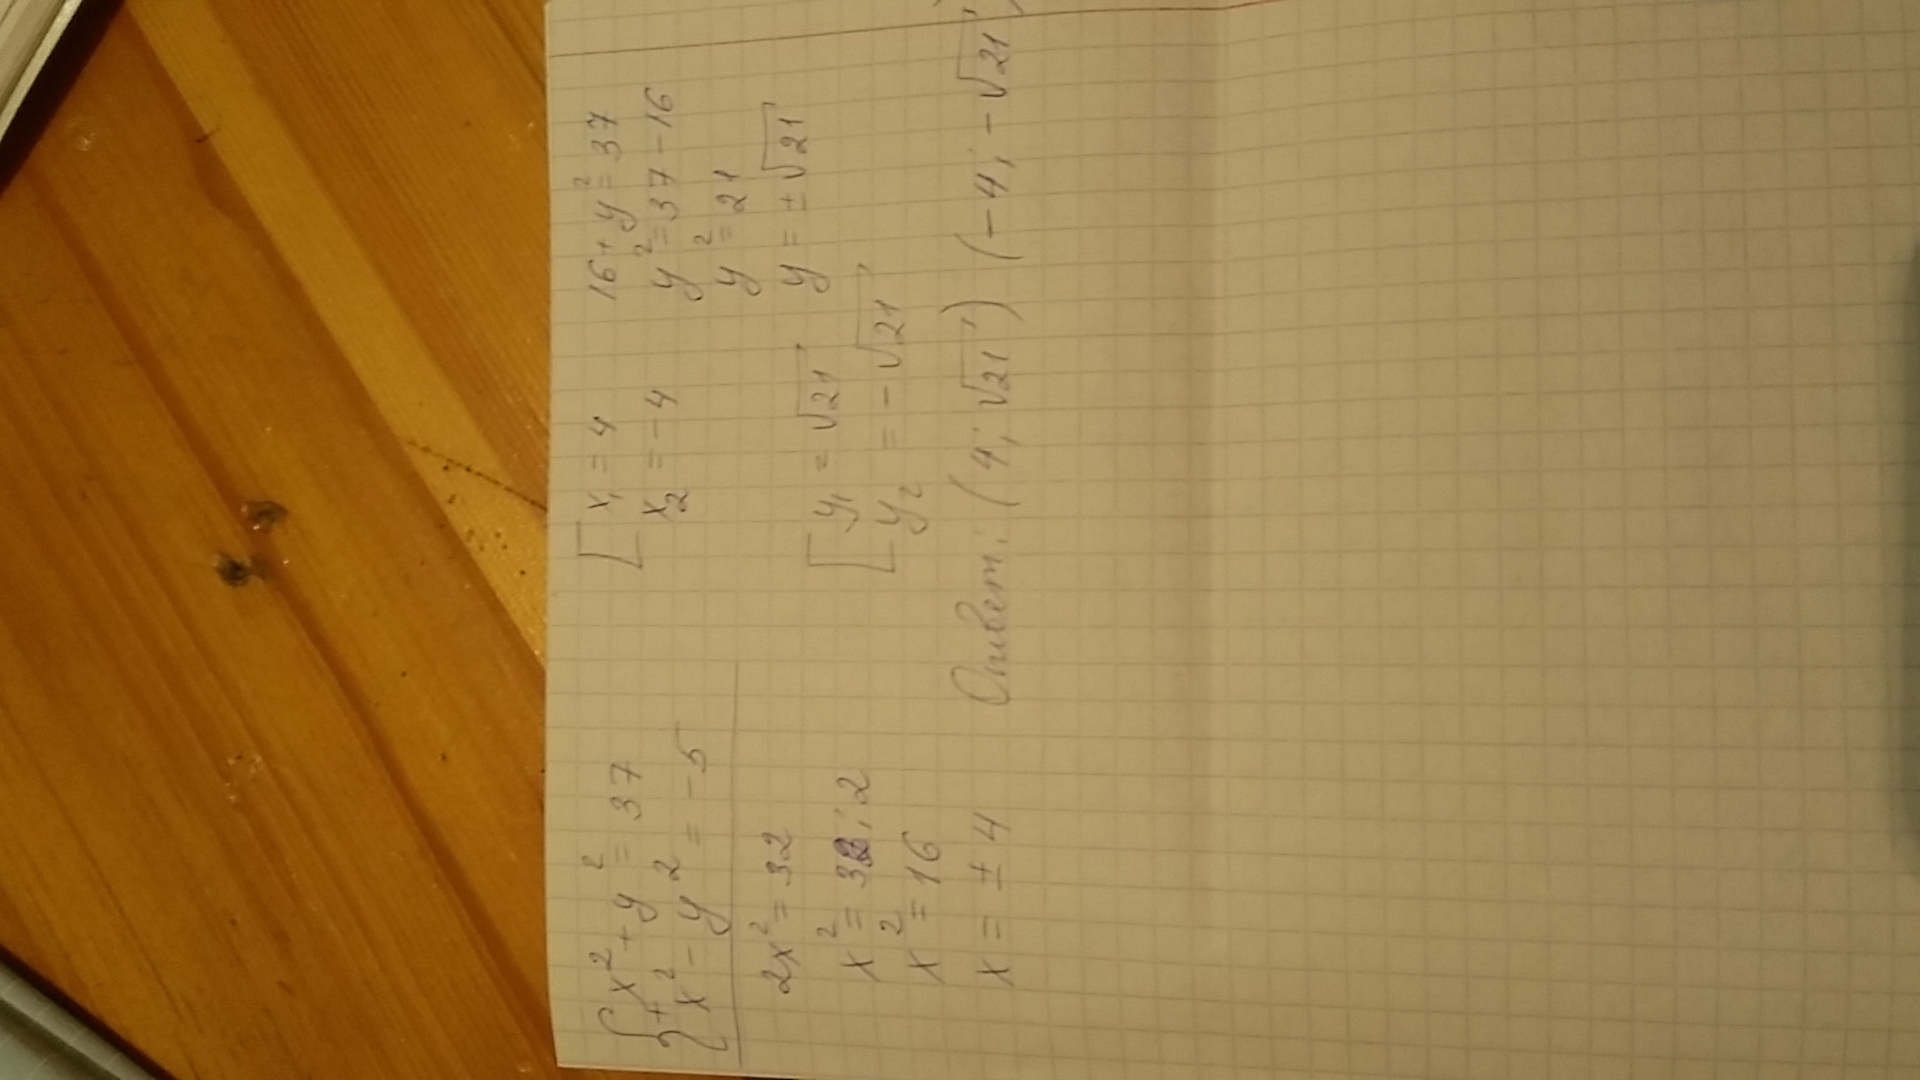 { x² + y² = 37
+ x² - y² = -5
2x² = 32
x² = 32 : 2
x² = 16
x = ± 4
[ x₁ = 4
x₂ = -4
16 + y² = 37
y² = 37 - 16
y² = 21
y = ± √21
[ y₁ = √21
y₂ = - √21
Ответ: (4; √21) (-4; -√21)